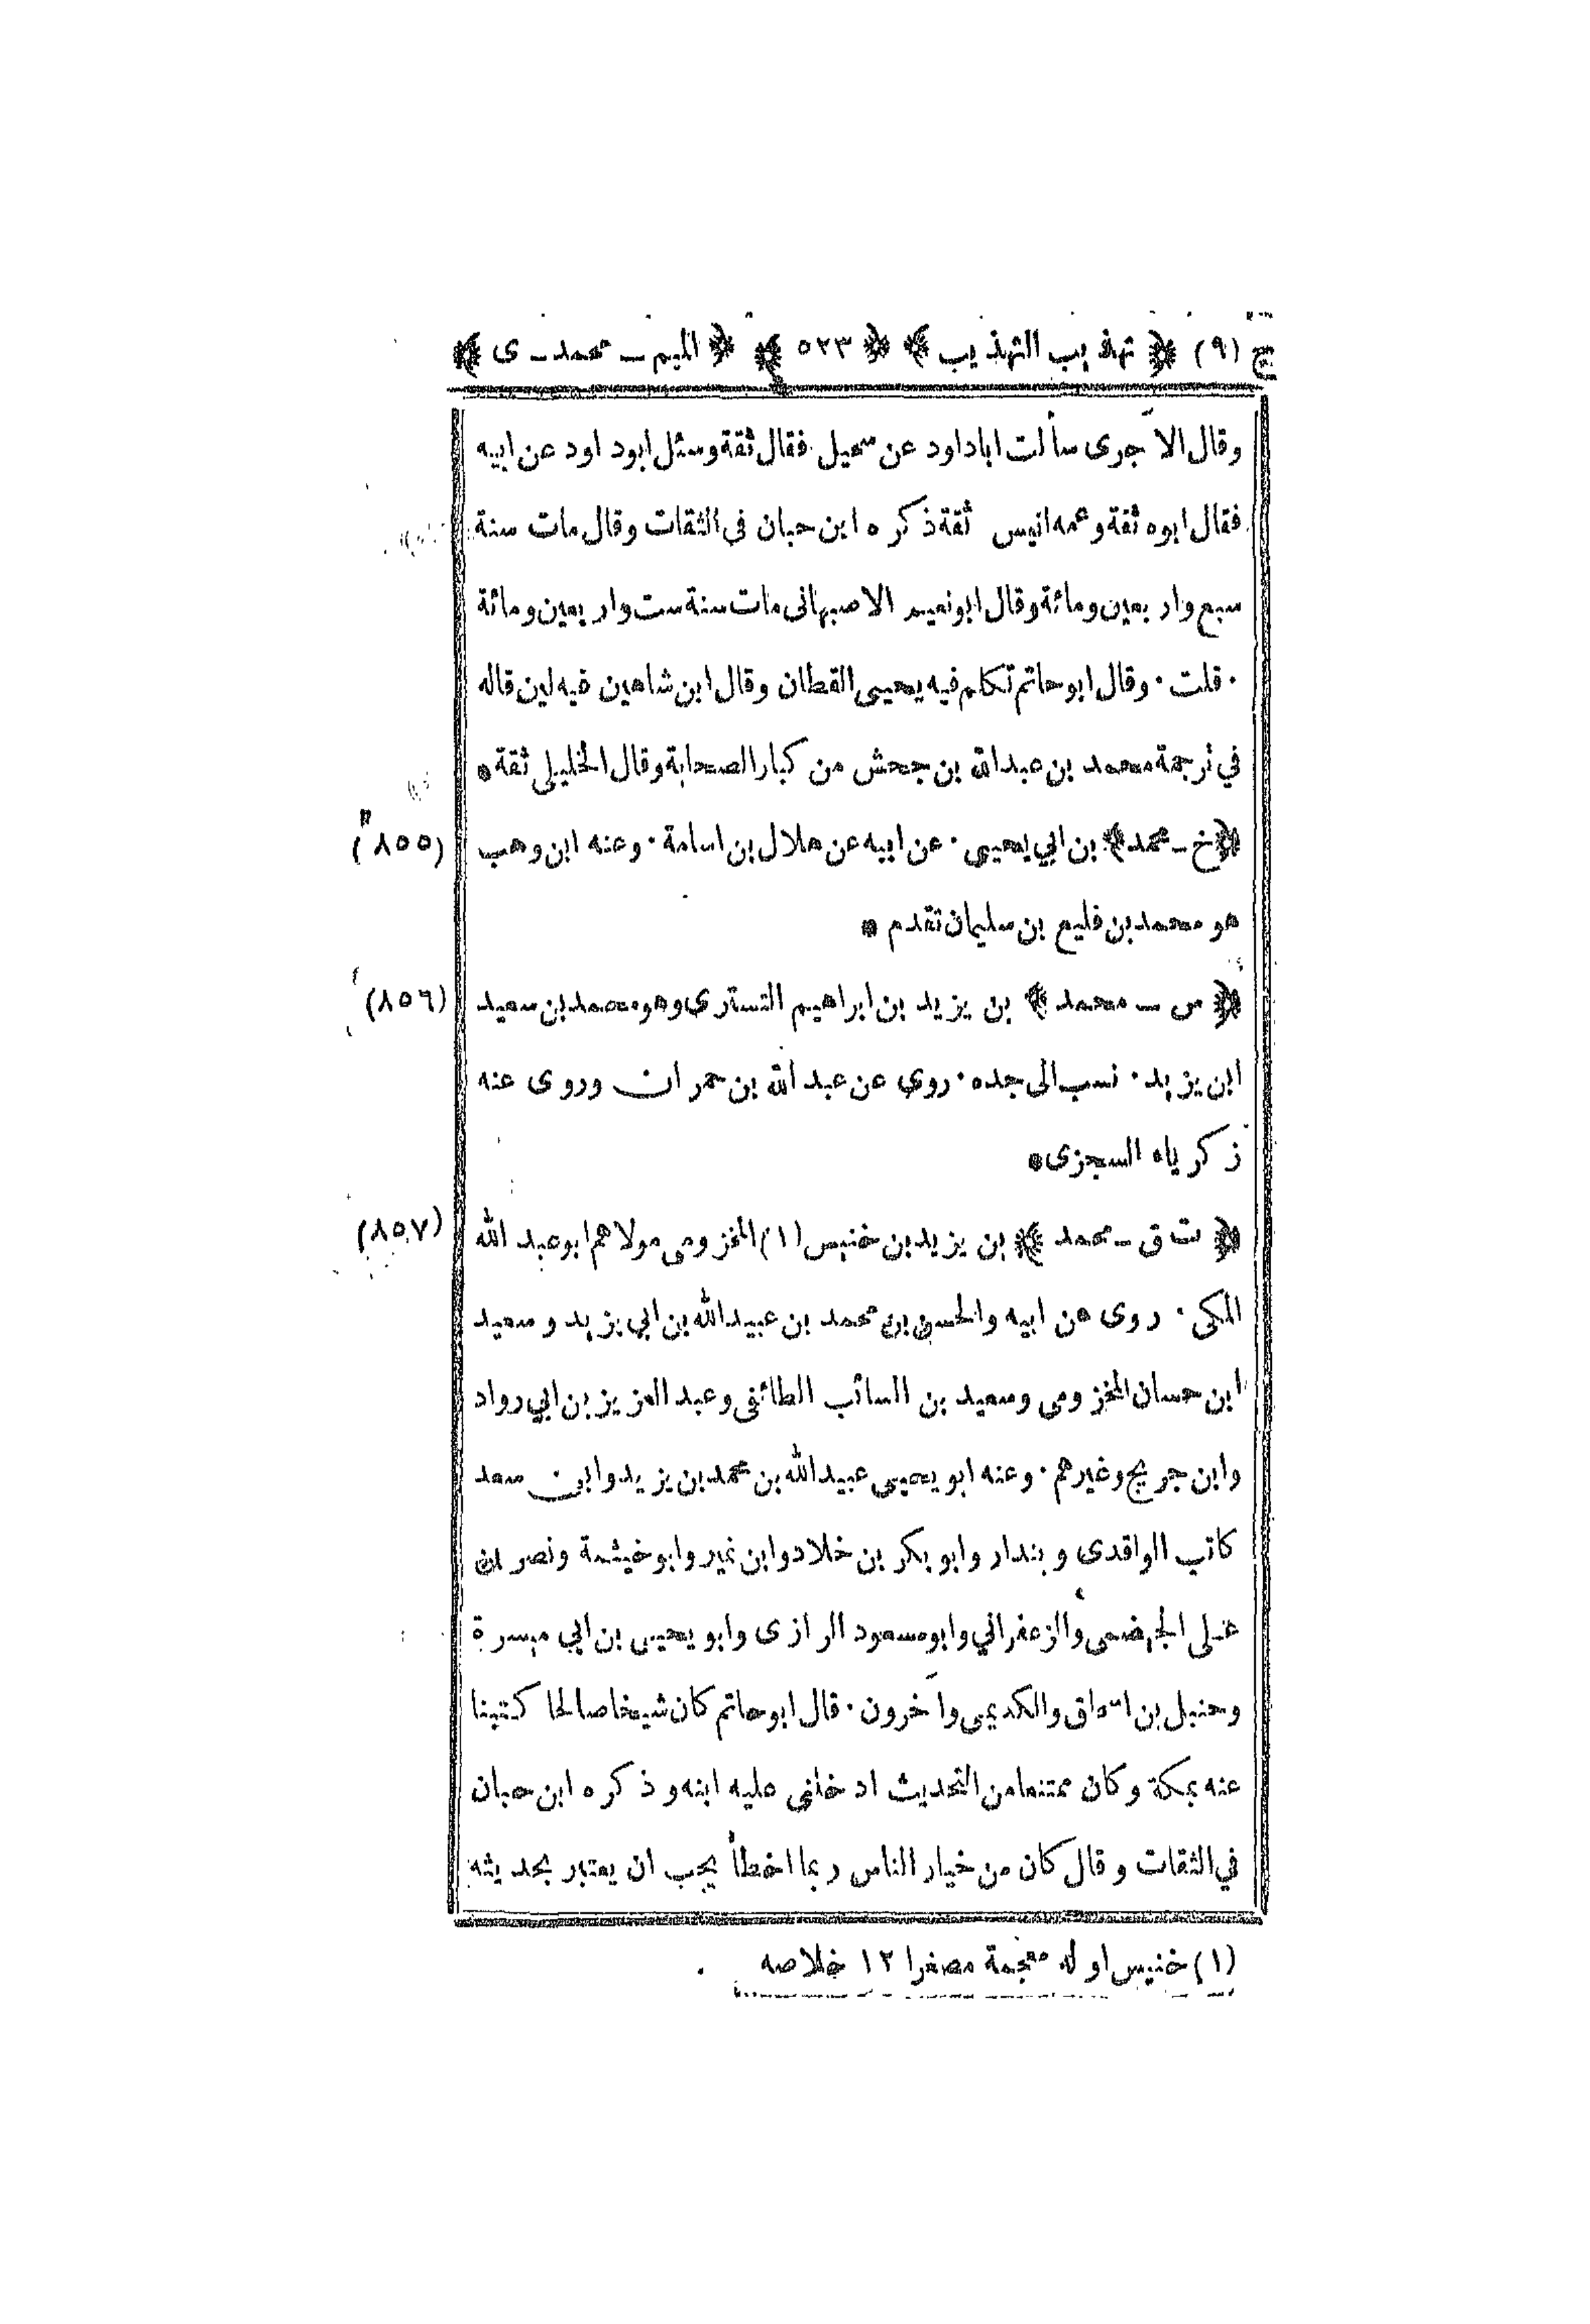 ج (٩) ﴿ تهذيب التهذيب ﴾ ﴿ ٥٢٣ ﴾ ﴿ الميم ـ محمد ـ ى ﴾
وقال الآجرى سألت اباداود عن سحبل فقال ثقة وسئل ابوداود عن ابيه
فقال ابوه ثقة وعمه انيس ثقة ذكره ابن حبان في الثقات وقال مات سنة
سبع واربعين ومائة وقال ابونعيم الاصبهانى مات سنة ست واربعين ومائة
· قلت · وقال ابوحاتم تكلم فيه يحيى القطان وقال ابن شاهين فيه لين قاله
في ترجمة محمد بن عبدالله بن جحش من كبار الصحابة وقال الخليلى ثقة *
﴿ خ ـ محمد ﴾ بن ابي يحيى · عن ابيه عن هلال بن اسامة · وعنه ابن وهب (٨٥٥)
هو محمد بن فليح بن سليمان تقدم *
﴿ س ـ محمد ﴾ بن يزيد بن ابراهيم التسترى وهو محمد بن سعيد (٨٥٦)
ابن يزيد · نسب الى جده · روى عن عبد الله بن حمران وروى عنه
زكرياء السجزى *
﴿ ت ق ـ محمد ﴾ بن يزيد بن خنيس (١) المخزومى مولاهم ابوعبد الله (٨٥٧)
المكى · روى عن ابيه والحسن بن محمد بن عبيدالله بن ابي يزيد وسعيد
ابن حسان المخزومى وسعيد بن السائب الطائفى وعبد العزيز بن ابي رواد
وابن جريج وغيرهم · وعنه ابو يحيى عبيدالله بن محمد بن يزيد وابن سعد
كاتب الواقدى وبندار وابو بكر بن خلاد وابن نمير وابوخيثمة ونصر بن
على الجهضمى والزعفراني وابومسعود الرازى وابو يحيى بن ابي ميسرة
وحنبل بن اسحاق والكديمى وآخرون · قال ابوحاتم كان شيخا صالحا كتبنا
عنه بمكة وكان ممتنعا من التحديث ادخلنى عليه ابنه وذكره ابن حبان
في الثقات وقال كان من خيار الناس ربما اخطأ يجب ان يعتبر بحديثه
(١) خنيس اوله معجمة مصغرا ١٢ خلاصه